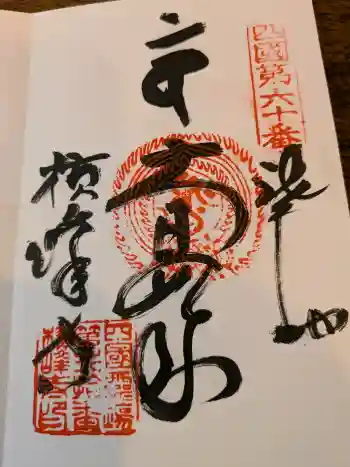 四國第六十番
奉納
大日如来
横峰寺
四國霊場
第六十番